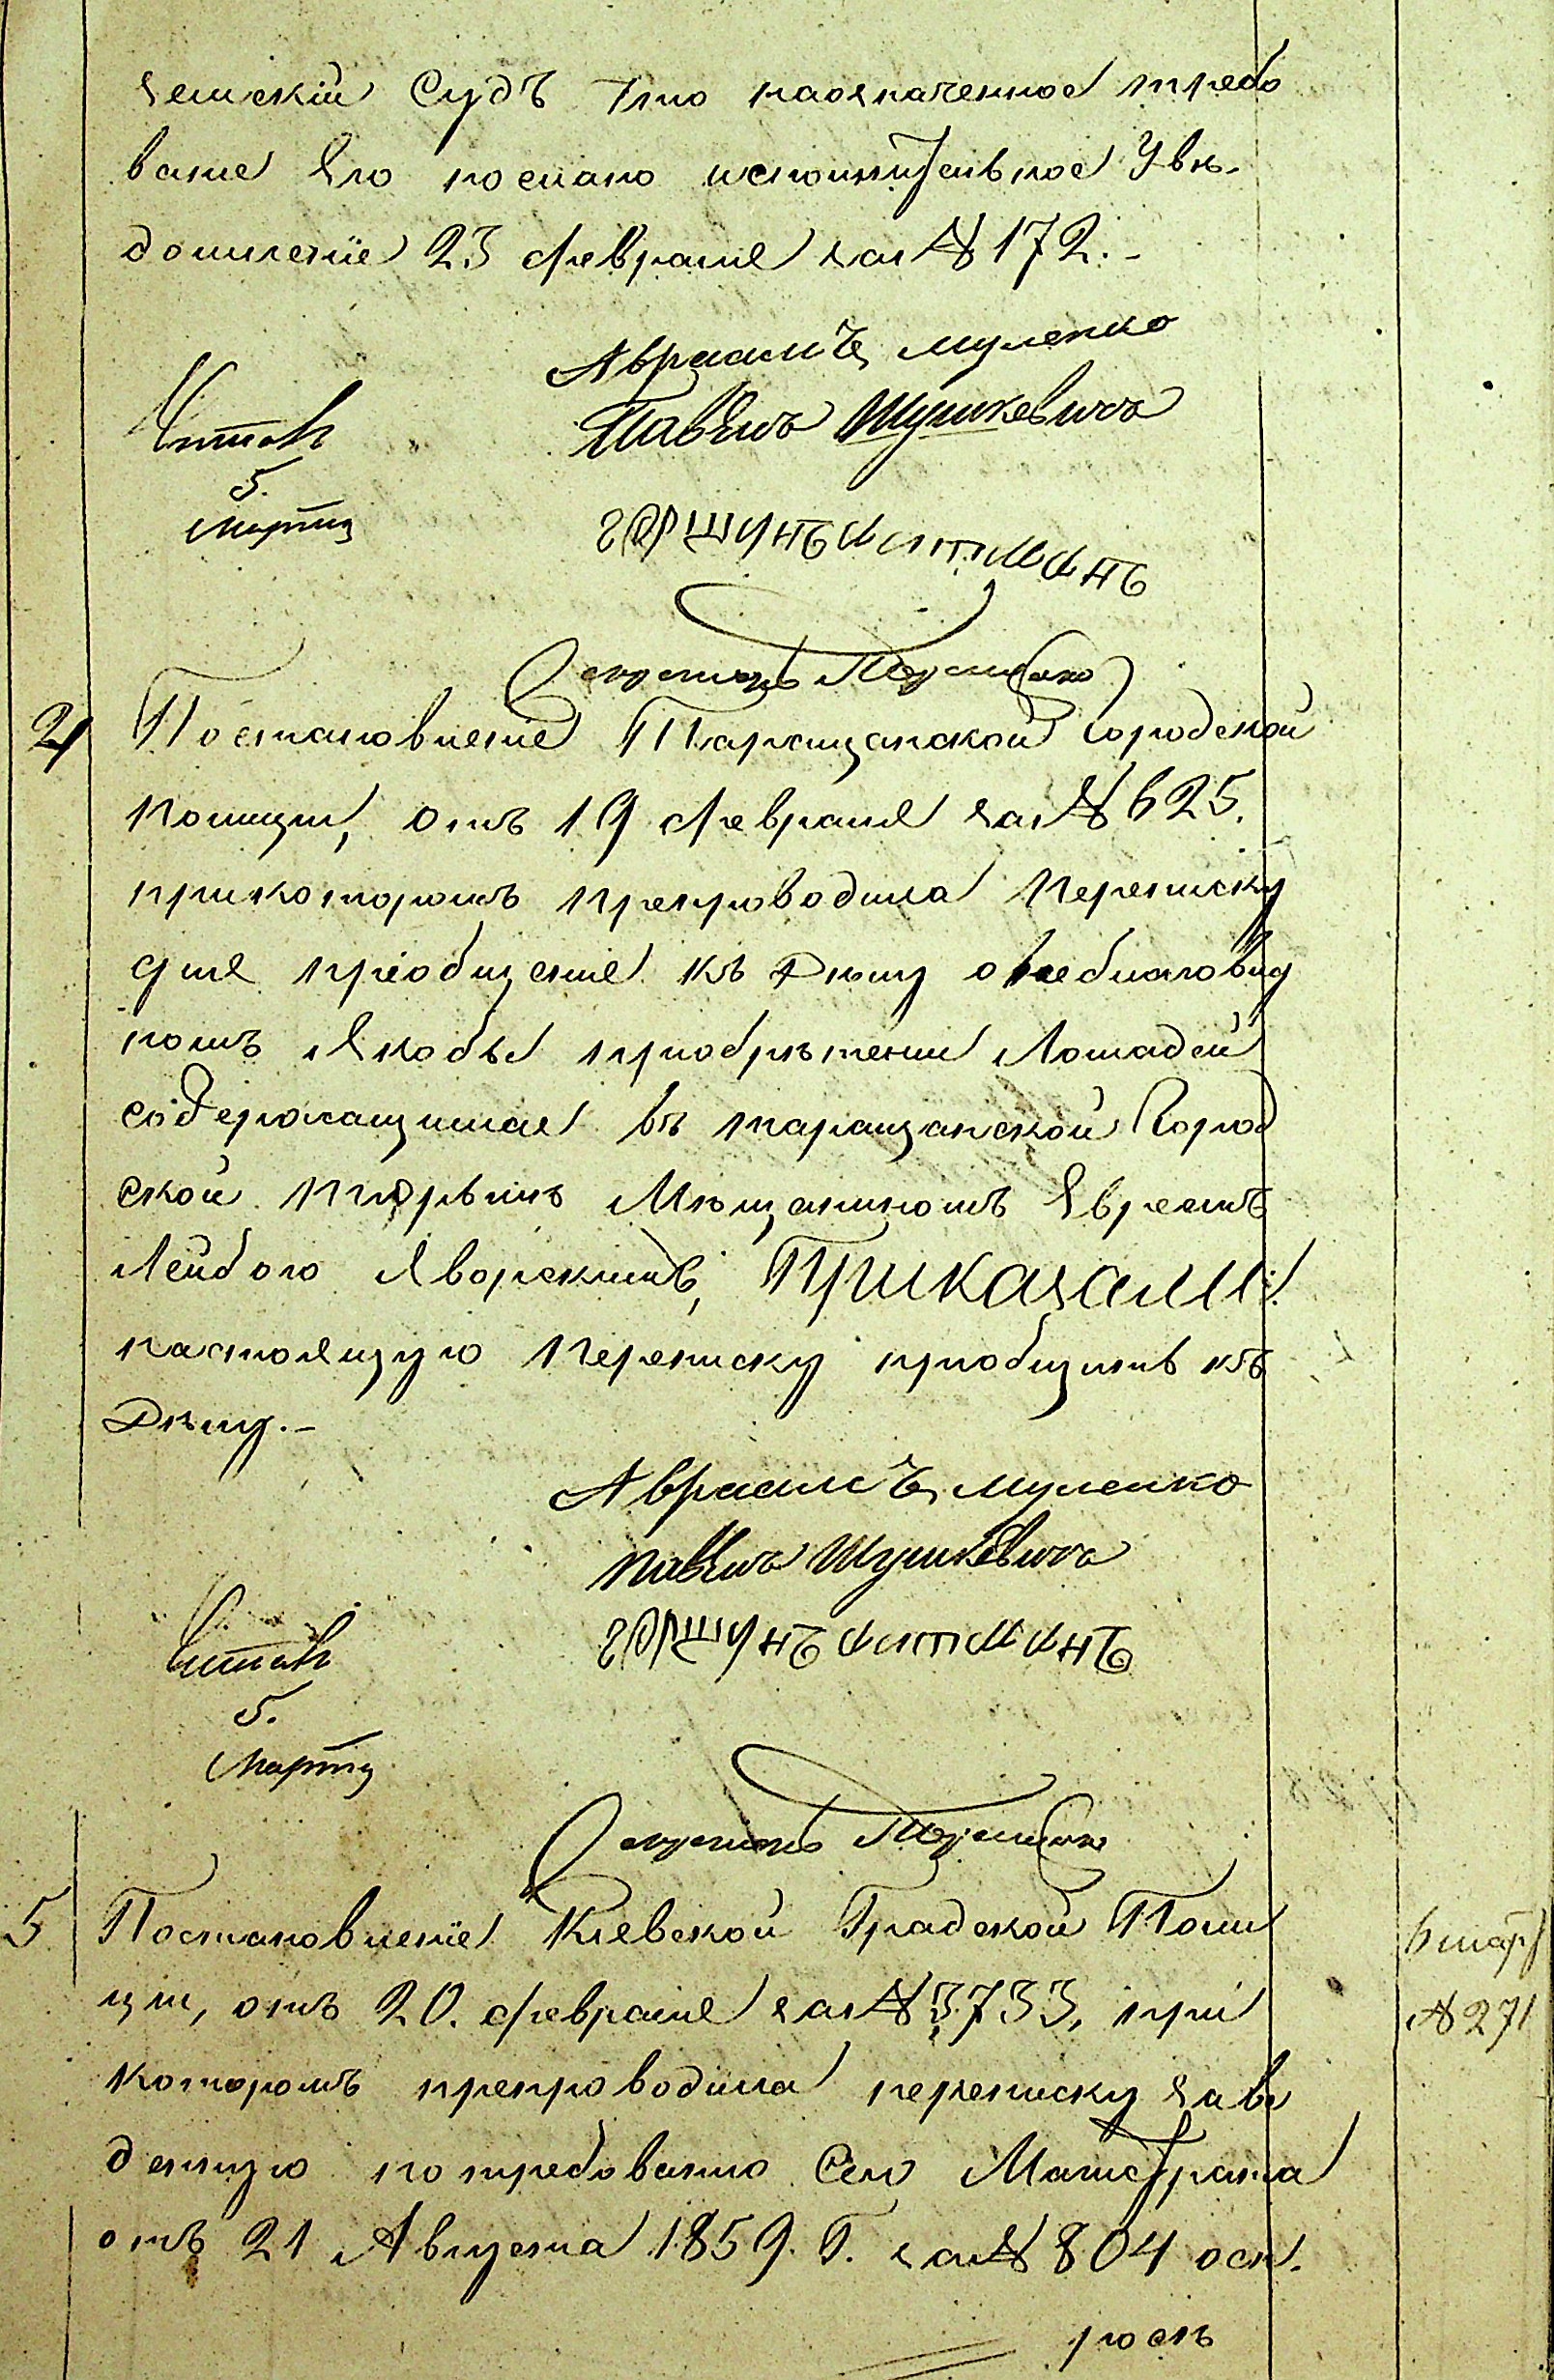 земскій Судъ что наозначенное требо
ваніе Его послано исполнительное Увѣ-
домленіе 23 февраля за № 172.-
Авраамъ Муленко
Павелъ Шулкевичъ
Читалъ
5.
Марта
Гершунъ Литманъ
Секретарь
4 Постановленіе Таращанской Городской
Полиціи, отъ 19 февраля за № 625.
прикоторомъ препроводила Переписку
для пріобщенія къ Дѣлу о неблаговид
номъ Якобы приобрѣтении Лошадей
содержащимся въ таращанской Город
ской тюрьмѣ Мѣщаниномъ Евреемъ
Лейбою Яворскимъ, Приказали:
настоящую Переписку приобщить къ
Дѣлу.-
Авраамъ Муленко
Павелъ Шулкевичъ
Гершунъ Литманъ
Читалъ
5.
Марта
Секретарь
5 Постановленіе Кіевской Градской Поли
ціи, отъ 20. февраля за № 3733, при
которомъ препроводила переписку заве
денную потребованію Сего Магистрата
отъ 21 Августа 1859. Г. за № 804 оск.
6 мар
№ 271
рость